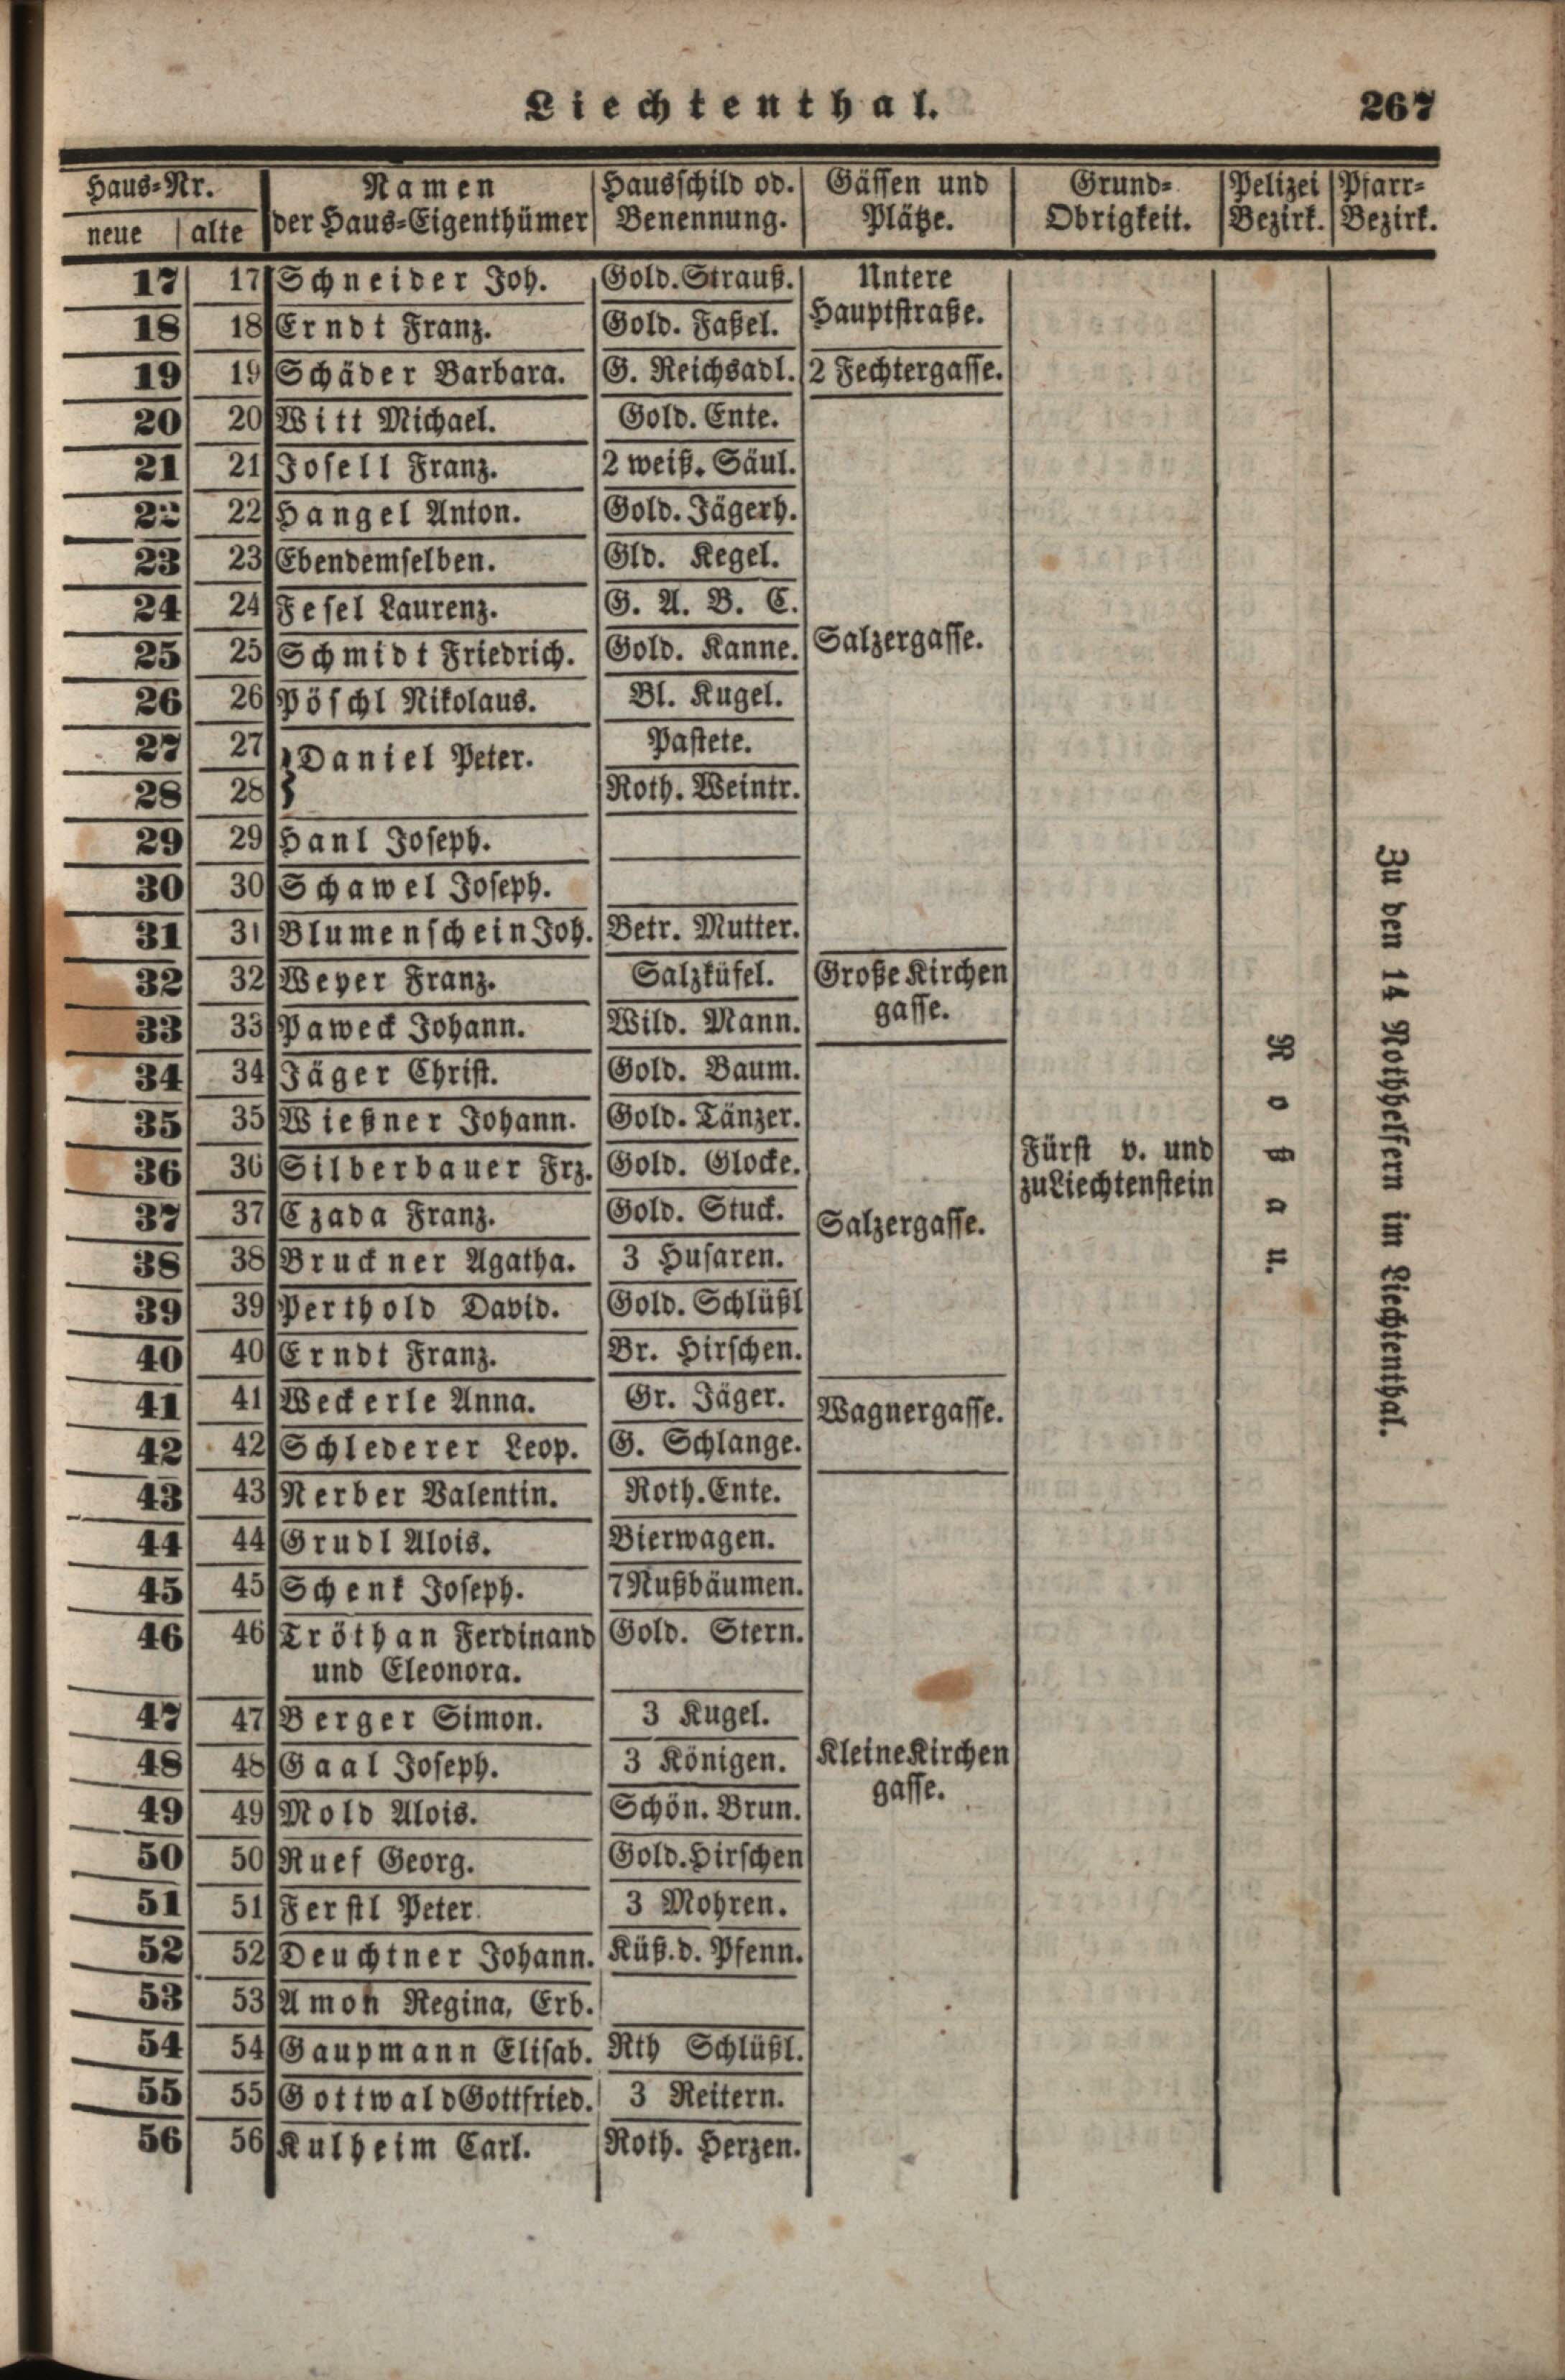 Liechtenthal. 267
Haus-Nr. Namen Hausschild od. Gässen und Grund- Pelizei Pfarr-
neue alte der Haus-Eigenthümer Benennung. Plätze. Obrigkeit. Bezirk. Bezirk.
17 17 Schneider Joh. Gold. Strauß. Untere
18 18 Erndt Franz. Gold. Faßel. Hauptstraße.
19 19 Schäder Barbara. G. Reichsadl. 2 Fechtergasse.
20 20 Witt Michael. Gold. Ente.
21 21 Josell Franz. 2 weiß. Säul.
22 22 Hangel Anton. Gold. Jägerh.
23 23 Ebendemselben. Gld. Kegel.
24 24 Fesel Laurenz. G. A. B. C.
25 25 Schmidt Friedrich. Gold. Kanne. Salzergasse.
26 26 Pöschl Nikolaus. Bl. Kugel.
27 27 Daniel Peter. Pastete.
28 28 Roth. Weintr.
29 29 Hanl Joseph.
30 30 Schawel Joseph.
31 31 Blumenschein Joh. Betr. Mutter.
32 32 Weyer Franz. Salzküfel. Große Kirchen
33 33 Paweck Johann. Wild. Mann. gasse.
34 34 Jäger Christ. Gold. Baum.
35 35 Wießner Johann. Gold. Tänzer.
36 36 Silberbauer Frz. Gold. Glocke. Fürst v. und
37 37 Czada Franz. Gold. Stuck. Salzergasse. zu Liechtenstein
38 38 Bruckner Agatha. 3 Husaren.
39 39 Perthold David. Gold. Schlüßl
40 40 Erndt Franz. Br. Hirschen.
41 41 Weckerle Anna. Gr. Jäger. Wagnergasse.
42 42 Schlederer Leop. G. Schlange.
43 43 Nerber Valentin. Roth. Ente.
44 44 Grudl Alois. Bierwagen.
45 45 Schenk Joseph. 7 Nußbäumen.
46 46 Tröthan Ferdinand Gold. Stern.
und Eleonora.
47 47 Berger Simon. 3 Kugel.
48 48 Gaal Joseph. 3 Königen. Kleine Kirchen
49 49 Mold Alois. Schön. Brun. gasse.
50 50 Ruef Georg. Gold. Hirschen
51 51 Ferstl Peter. 3 Mohren.
52 52 Deuchtner Johann. Küß. d. Pfenn.
53 53 Amon Regina, Erb.
54 54 Gaupmann Elisab. Rth Schlüßl.
55 55 Gottwald Gottfried. 3 Reitern.
56 56 Kulheim Carl. Roth. Herzen.
Roßau.
Zu den 14 Nothhelfern im Liechtenthal.